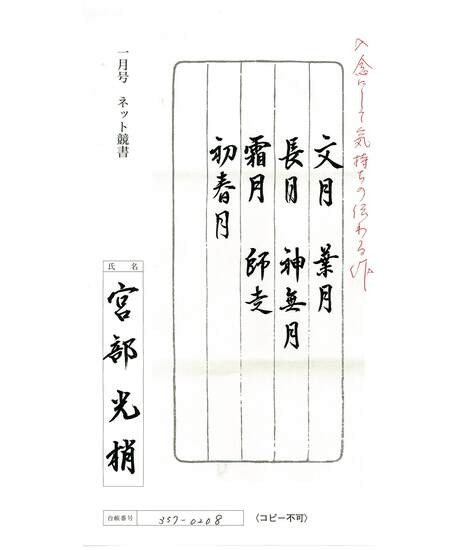 入念にして気持ちの伝わる作
文月 葉月
長月 神無月
霜月 師走
初春月
一月号 ネット競書
氏名
宮部光梢
台帳番号 357-0208
〈コピー不可〉